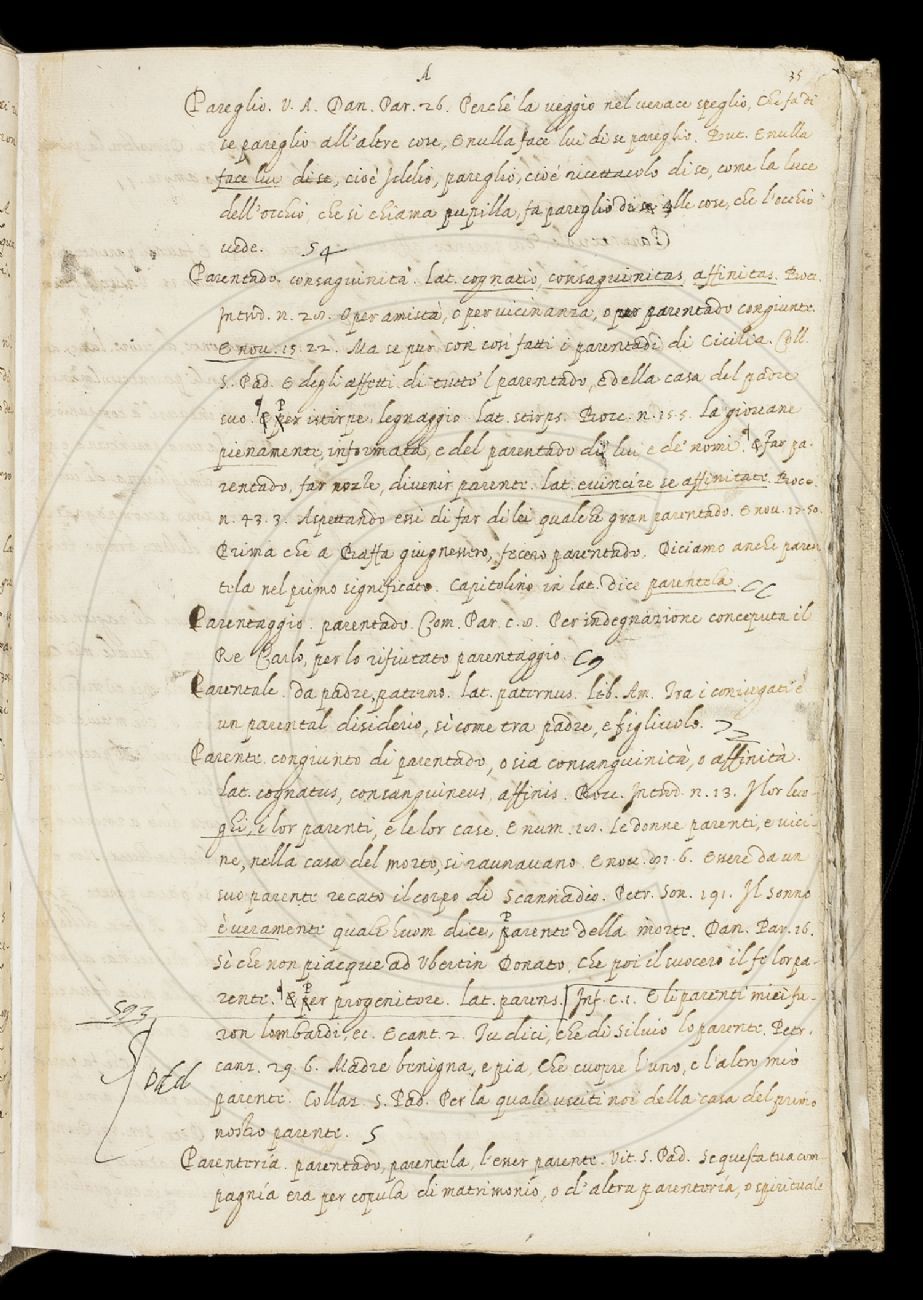 A
35
Pareglio. V. A. Dan. Par. 26. Perchè la veggio nel verace speglio, Che fa di
se pareglio all'altre cose, E nulla face lui di se pareglio. But. E nulla
face lui di se, cioè Iddio, pareglio, cioè ricettacolo di se, come la luce
dell'occhio, che si chiama pupilla, fa pareglio di se alle cose, che l'occhio
vede. 54
Parentado. consaguinità. lat. cognatio, consaguinitas, affinitas. Bocc.
Introd. n. 28. O per amistà, o per vicinanza, o per parentado congiunte.
E nov. 15. 22. Ma se pur con così fatti i parentadi di Cicilia. Coll.
S. Pad. E degli affetti di tutto 'l parentado, e della casa del padre
suo. ¶ & Per istirpe, legnaggio. lat. stirps. Bocc. n. 15. 5. la giovane
pienamente informata, e del parentado di lui e de' nomi. ¶ & far pa-
rentado, far nozze, divenir parente. lat. evincire se affinitate. Bocc.
n. 43. 3. Aspettando essi di far di lei qualche gran parentado. E nov. 17. 50.
Prima che a Baffa giugnessero, fecero parentado. Diciamo anche paren
tela nel primo significato. Capitolino in lat. dice parentela. CC
Parentaggio. parentado. Com. Par. c. 8. Per indegnazione conceputa il
Re Carlo, per lo rifiutato parentaggio. C9
Parentale. da padre, paterno. lat. paternus. Lib. Am. Tra i coniugati è
un parental disiderio, sì come tra padre, e figliuolo. 72
Parente. congiunto di parentado, o sia consanguinità, o affinità.
lat. cognatus, consanguineus, affinis. Bocc. Introd. n. 13. I lor leco-
ghi, i lor parenti, e le lor case. E num. 18. Le donne parenti, e vici-
ne, nella casa del morto, si raunavano. E nov. 81. 6. Essere da un
suo parente recato il corpo di Scannadio. Petr. Son. 191. Il sonno
è veramente quale huom dice, Parente della morte. Dan. Par. 16.
Sì che non piacque ad Ubertin Donato, Che poi il suocero il fe lor pa-
rente. ¶ & Per progenitore. lat. parens. Inf. c. 1. E li parenti miei fu-
ron lombardi, ec. E cant. 2. Tu dici, che di Silvio lo parente. Petr.
canz. 29. 6. Madre benigna, e pia, Che cuopre l'uno, e l'altro mio
parente. Collaz. S. Pad. Per la quale usciti noi della casa del primo
nostro parente. 5
593
Parenteria. parentado, parentela, l'esser parente. Vit. S. Pad. Se questa tua com
pagnia era per copula di matrimonio, o d'altra parenteria, o spirituale